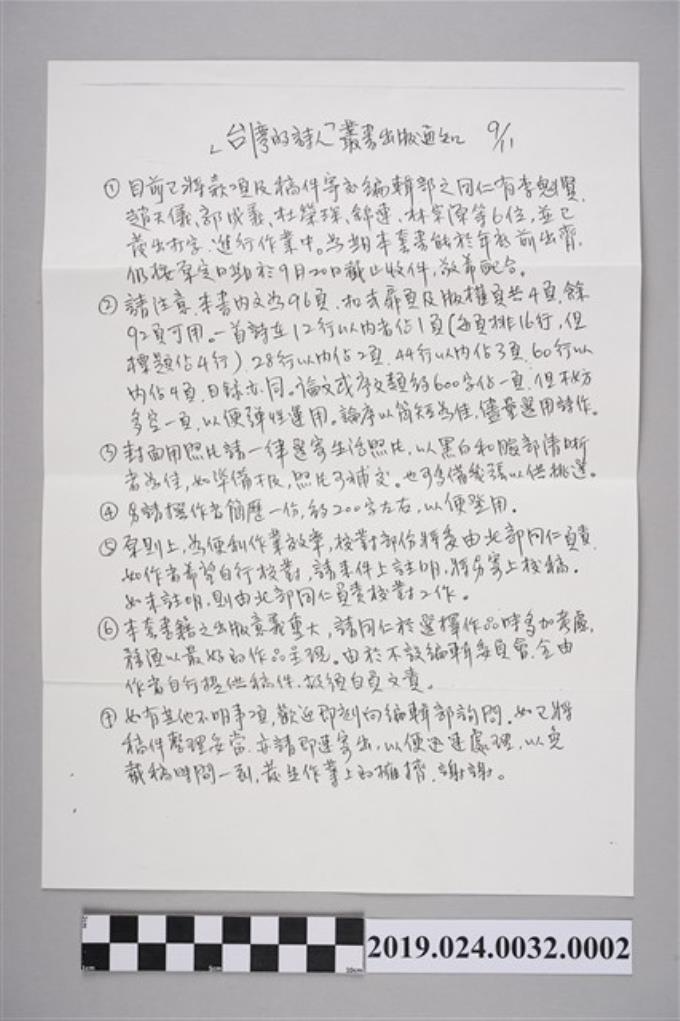 「台灣的詩人」叢書出版通知 9/11
① 目前已將款項及稿件寄至編輯部之同仁有李魁賢、
趙天儀、郭成義、杜榮琛、靜蓮、林宗源等6位,並已
發出打字,進行作業中。為期本套書能於年底前出齊,
仍按原定日期於9月20日截止收件,敬希配合。
② 請注意,本書內文為96頁,扣去扉頁及版權頁共4頁,餘
92頁可用。一首詩在12行以內者佔1頁(每頁排16行,但
標題佔4行)、28行以內佔2頁、44行以內佔3頁、60行以
內佔4頁,目錄亦同。論文或序文類約600字佔一頁,但不妨
多空一頁,以便彈性運用。論序以簡短為佳,儘量選用詩作。
③ 封面用照片請一律選寄生活照片,以黑白和臉部清晰
者為佳,如準備不及,照片可補交。也可多備幾張以供挑選。
④ 另請撰作者簡歷一份,約200字左右,以便登用。
⑤ 原則上,為便利作業效率,校對部份將委由北部同仁負責,
如作者希望自行校對,請來件上註明,將另寄上校稿。
如未註明,則由北部同仁負責校對工作。
⑥ 本套書籍之出版意義重大,請同仁於選擇作品時多加考慮,
務須以最好的作品呈現。由於不設編輯委員會,全由
作者自行提供稿件,故須自負文責。
⑦ 如有其他不明事項,歡迎即刻向編輯部詢問。如已將
稿件整理妥當,亦請即速寄出,以便迅速處理,以免
截稿時間一到,發生作業上的擁擠。謝謝。
2019.024.0032.0002